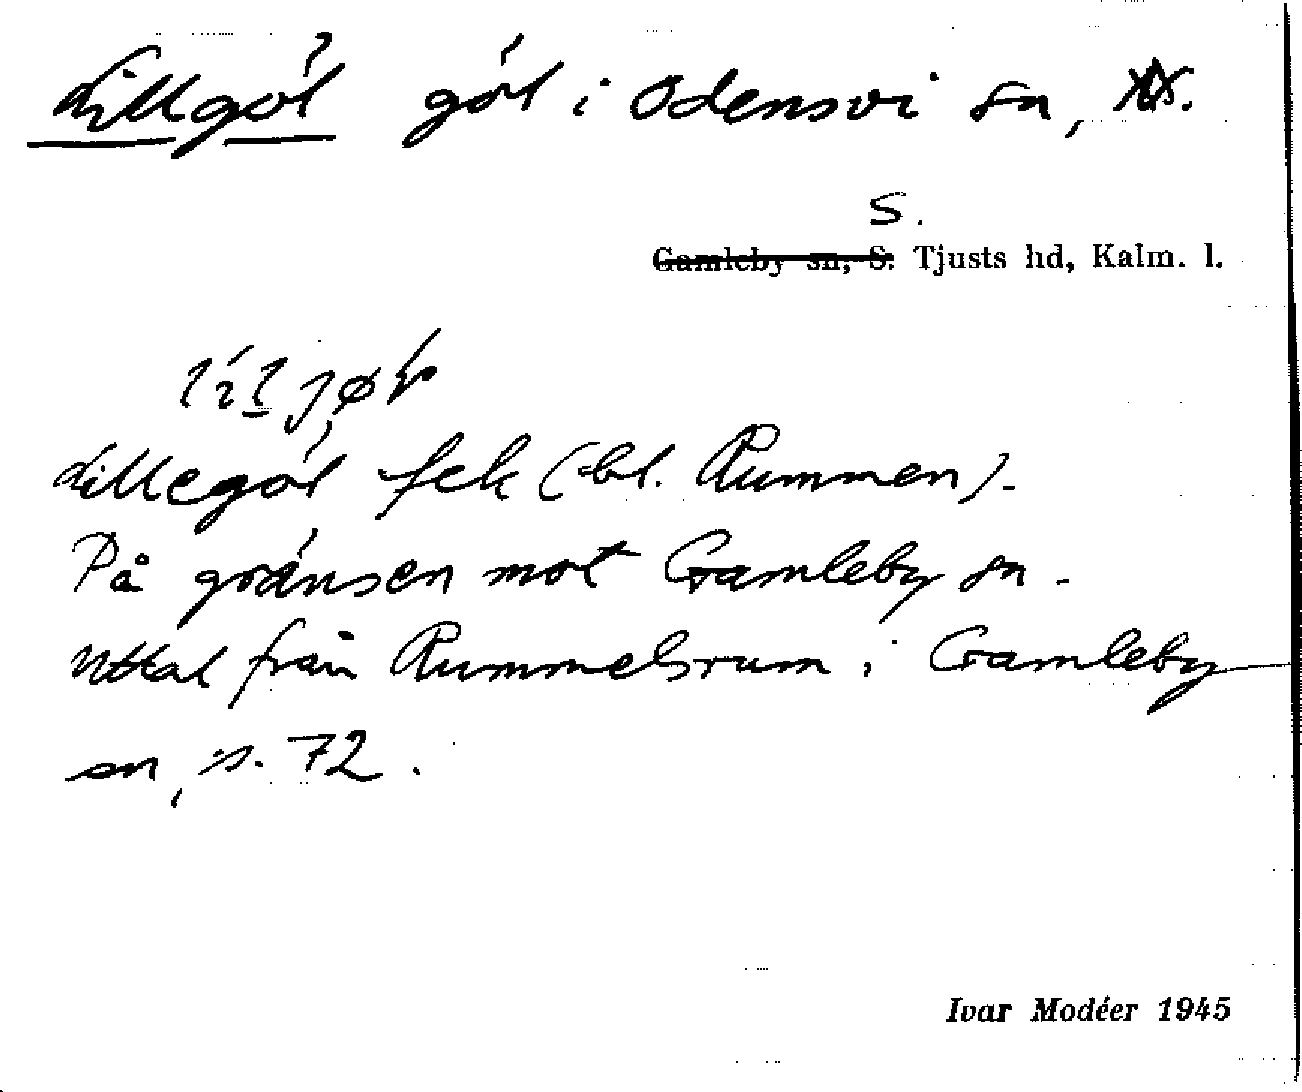 Lillgöl göl i Odensvi sn,
S.
Gamleby sn, S. Tjusts hd, Kalm. l.
Lillegöl fek (bl. Rummen).
På gränsen mot Gamleby sn.
Uttal från Rummelsrum i Gamleby
sn, s. 72.
Ivar Modéer 1945